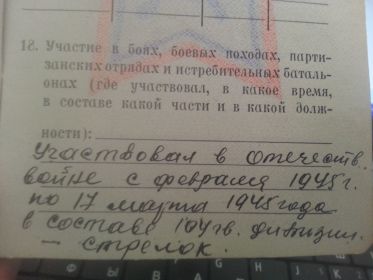 18. Участие в боях, боевых походах, парти-
занских отрядах и истребительных баталь-
онах (где участвовал, в какое время,
в составе какой части и в какой долж-
ности):
Участвовал в отечеств.
войне с февраля 1945 г.
по 17 марта 1945 года
в составе 104 гв. дивизии.
– стрелок.